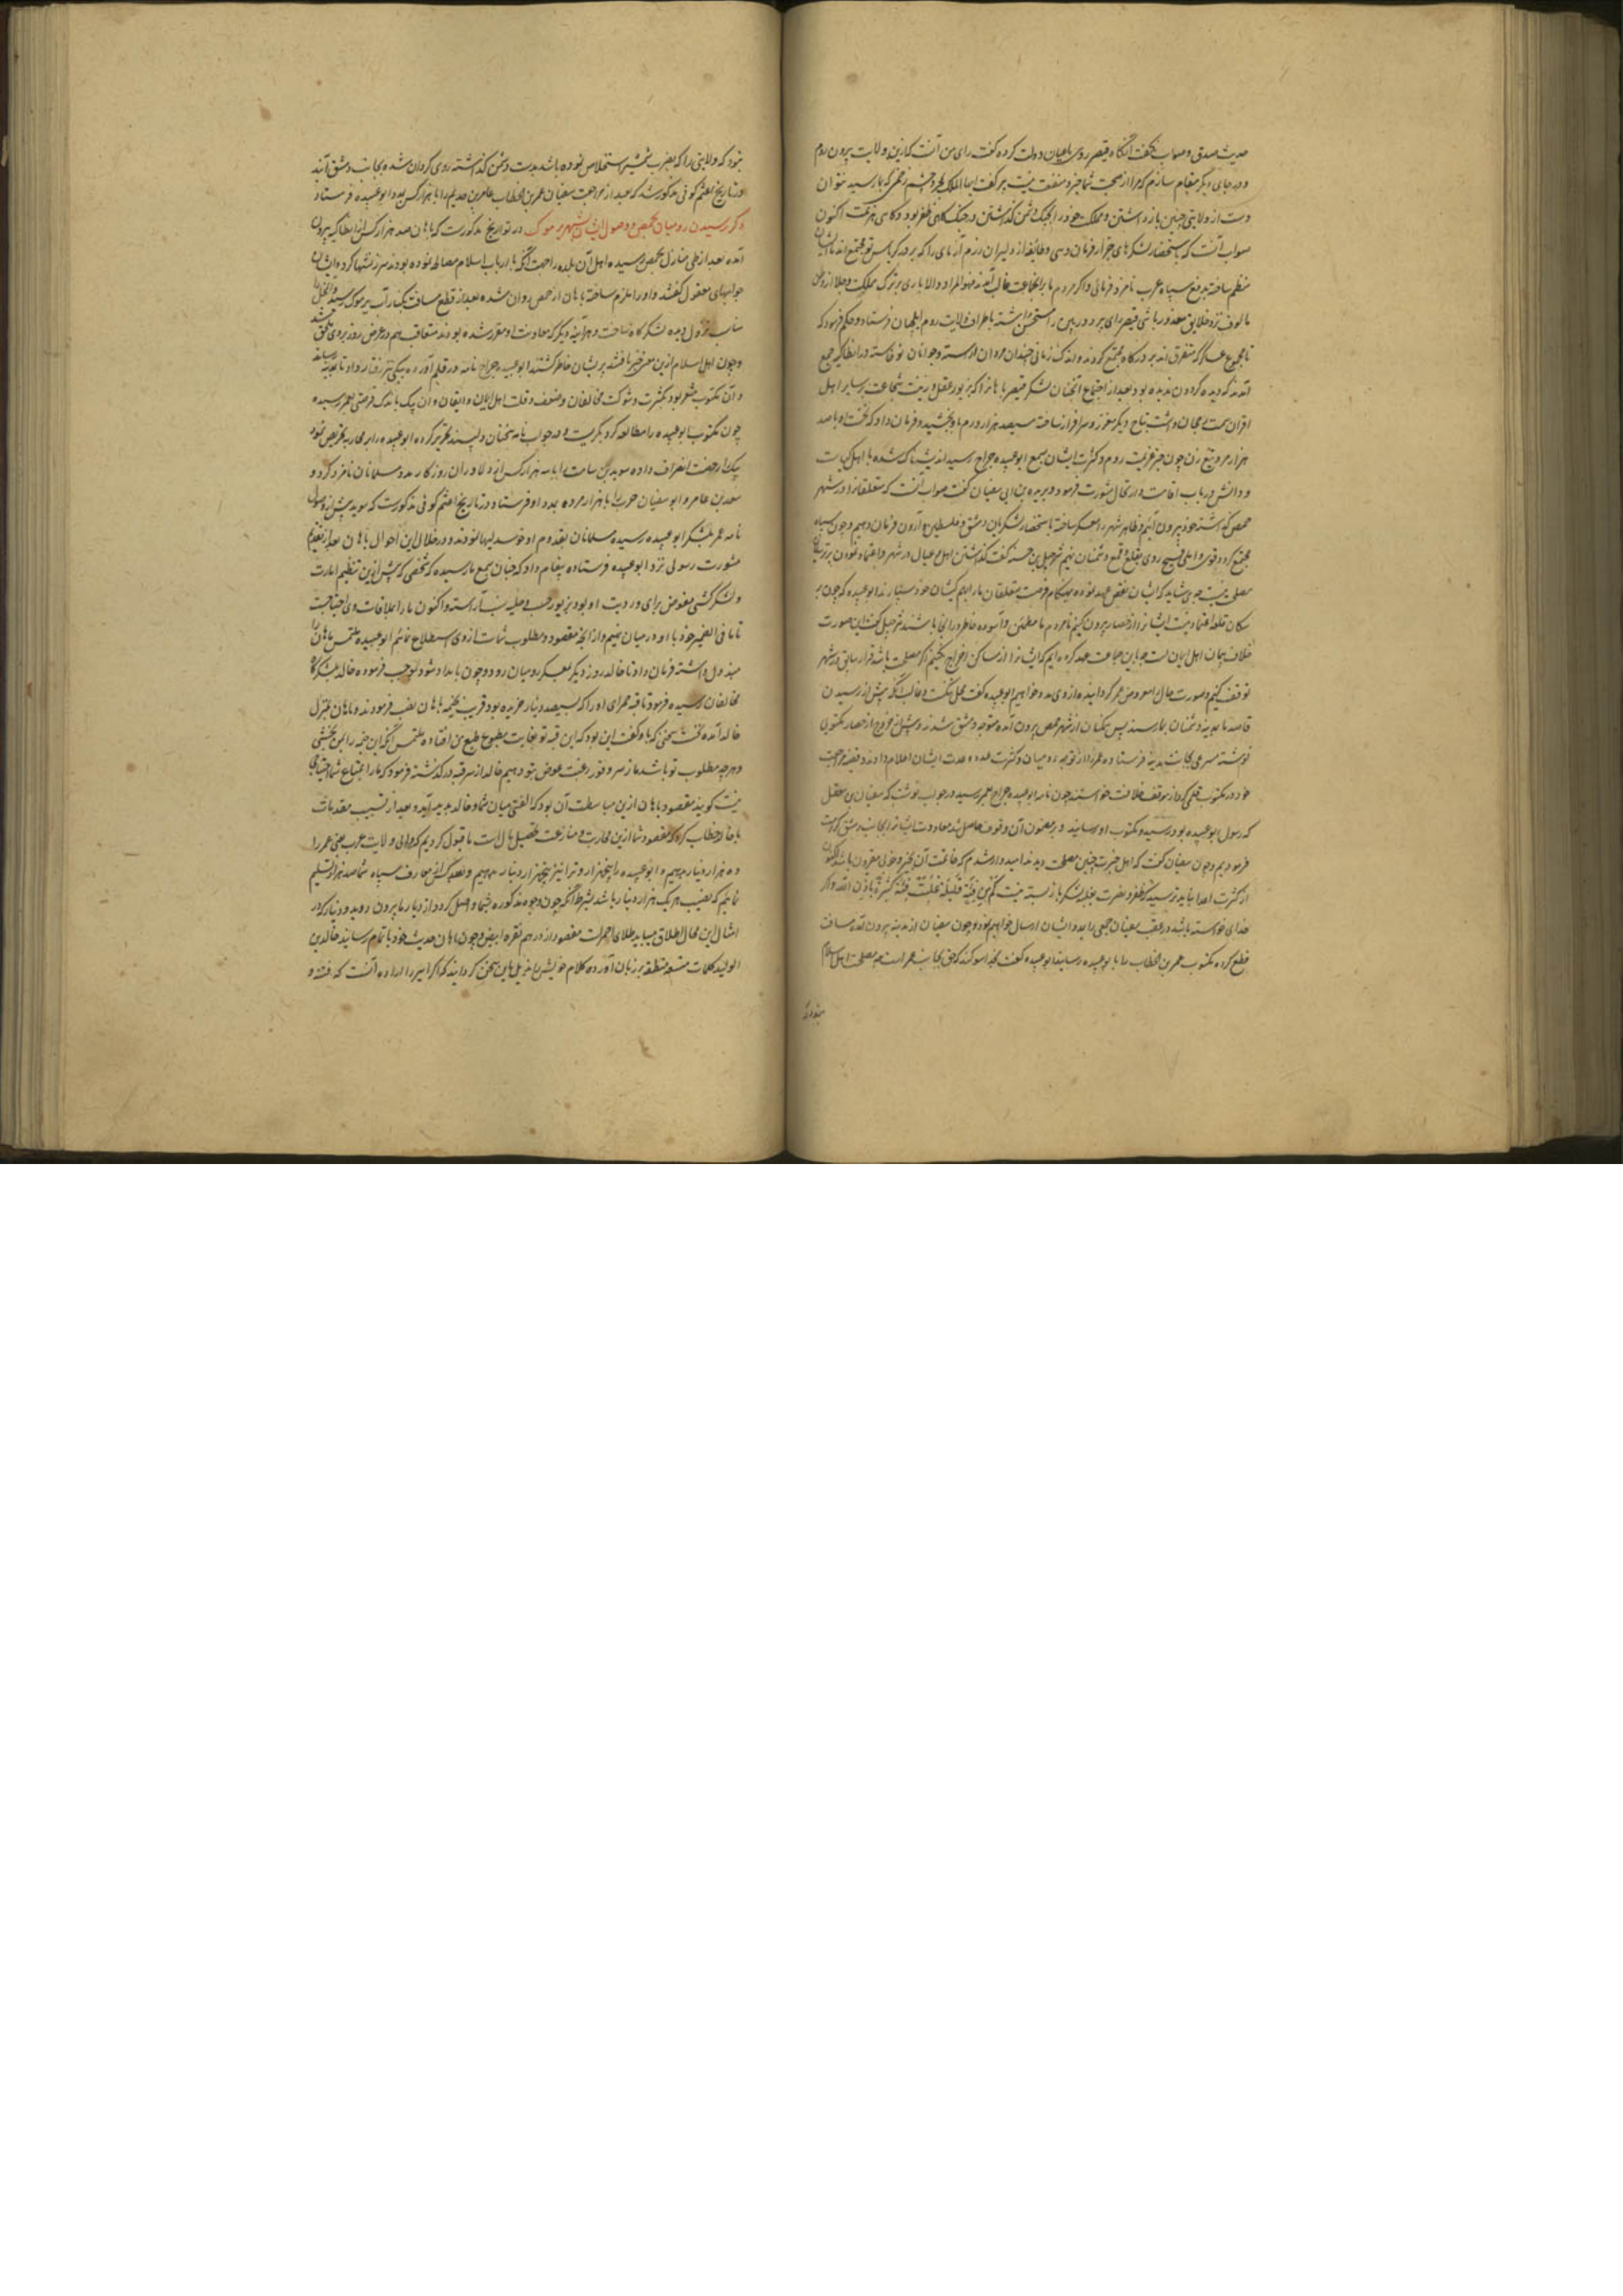 حدیث صدق و صواب گفت آنگاه قیصر روی باعیان دولت کرده گفت رای من آنست که ازین ولایت بیرون روم
و در جای دیگر مقام سازم که مرا از صحبت شما خیر و منفعت نیست پیر گفت ایها الملک
دست از ولایتی چنین باز داشتن و مملکت خود را بی جنک بدشمن گذاشتن در جنک کاهی ظفر بود و کاهی هزیمت اکنون
صواب آنست که باستحضار لشکرهای جرار فرمان دهی و طایفه از دلیران رزم آزمای را که بر درکه تو مجتمع اند
منظم ساخته بدفع سپاه عرب نامزد فرمائی و اگر مردم ما بر آنجماعت غالب آمدند فهو المراد و الا باری بر ترک مملکت و جلا از وطن
مالوف نزد خلایق معذور باشی قیصر رای پیر را مستحسن داشته باطراف ولایت روم ایلچیان فرستاد و حکم فرمود که
تا مجموع عساکر که متفرق اند بر درکاه مجتمع کردند و اندک زمانی چندان مردان آراسته و جوانان نوخاسته در انطاکیه جمع
آمدند که دیده کردون ندیده بود و بعد از اجتماع آنچنان لشکر قیصر باهان را که بزیور عقل و زینت شجاعت بر سایر اهل
اقران سمت رجحان داشت بتاج دیگر معزز و سرافراز ساخته سیصد هزار درم باو بخشید و فرمان داد که نخست او با صد
هزار مرد تیغ زن چون خبر عزیمت روم و کثرت ایشان بسمع ابوعبیده جراح رسید اندیشناک شده با اهل کیاست
و دانش در باب اقامت و ارتحال مشورت فرمود و یزید بن ابی سفیان گفت صواب آنست که متعلقانرا در شهر
حمص گذاشته خود بیرون آئیم و ظاهر شهر را معسکر ساخته باستحضار لشکریان دمشق و فلسطین و اردن فرمان دهیم و چون سپاه
مجتمع کردد روی بقلع و قمع دشمنان نهیم شرحبیل بن حسنه گفت گذاشتن اهل و عیال در شهر و اعتماد نمودن بر
مصلحت نیست چه می شاید که ایشان نقض عهد نموده بهنگام فرصت متعلقان ما را بهم کیشان خود سپارند ابوعبیده گفت چون بر
سکان قلعه اعتماد نیست ایشانرا از حصار بیرون کنیم تا مردم ما مطمئن و آسوده خاطر در آنجا باشند شرحبیل گفت این صورت
خلاف پیمان اهل ایمان است چه با این جماعت عهد کرده ایم که ایشانرا از مساکن اخراج نکنیم اگر مصلحت باشد قرار سابق در شهر
توقف کنیم و صورت حال معروض عمر کردانیده از وی مدد خواهیم ابوعبیده گفت مجال تنک است و غالب آنکه پیش از رسیدن
قاصد ما بمدینه دشمنان بما رسند پس همکنان از شهر حمص بیرون آمده متوجه دمشق شدند و پیش از خروج از حصار مکتوبی
نوشته مسرعی بجانب مدینه فرستاده عمر را از توجه رومیان و کثرت عدد و عدت ایشان اعلام دادند
خود در مکتوب قلمی کردند از موقف خلافت خواستند چون نامه ابوعبیده جراح بعمر رسید در جواب نوشت که سفیان بن معقل
که رسول ابوعبیده بود رسید و مکتوب او رسانید و بر مضمون آن وقوف حاصل شد معاودت ایشانرا بجانب دمشق
فرمودیم و چون سفیان گفت که اهل خبرت چنین مصلحت دیدند امیدوار شدم که عاقبت آن بخیر و خوبی مقرون باشد
از کثرت اعدا نباید ترسید که ظفر و نصرت بغلبه لشکر باز بسته نیست کم من فئة قلیلة غلبت فئة کثیرة باذن الله و اگر
خدای خواسته باشد در عقب سفیان جمعی را بمدد ایشان ارسال خواهیم نمود و چون سفیان از مدینه بیرون آمده مسافت
قطع کرده مکتوب عمر بن الخطاب را با بوعبیده رسانید ابوعبیده گفت بخدا سوکند که حق بجانب عمر است چه مصلحت اهل اسلام
نبود که ولایتی را که بضرب شمشیر استخلاص نموده باشند بدست دشمن گذاشته روی کردان شده بجانب دمشق آیند
و در تاریخ اعثم کوفی مذکورست که بعد از مراجعت سفیان عمر بن الخطاب عامر بن حذیم را با هزار کس بمدد ابوعبیده فرستاد
ذکر رسیدن رومیان بحمص و وصول ایشان بشهر یرموک در تواریخ مذکورست که باهان با صد هزار کس از انطاکیه بیرون
آمده بعد از طی منازل بحمص رسیده اهل آن بلده را بجهت آنکه با ارباب اسلام مصالحه نموده بودند سرزنشها کرد و ایشان
جوابهای معقول گفتند و او را ملزم ساخته باهان از حمص روان شده بعد از قطع مسافت بکنار آب یرموک رسید
مناسب نزول دیده لشکرگاه ساخت و هر آینه دیگر که معاونت او مقرر شده بودند متعاقب هم در عرض روز بوی ملحق
و چون اهل اسلام ازین معنی خبر یافتند پریشان خاطر گشتند ابوعبیده جراح نامه در قلم آورده به پیکی تیز رفتار داد تا بمدینه
و آن مکتوب مشعر بود بکثرت و شوکت مخالفان و ضعف و قلت اهل ایمان و ایقان و آن پیک باندک فرصتی بعمر رسیده
چون مکتوب ابوعبیده را مطالعه کرد بگریست و در جواب نامه سخنان دلپسند تحریر کرده ابوعبیده را بر محاربه تحریض نمود
پیک را رخصت انصراف داده سوید بن صامت را با سه هزار کس از دلاوران روزکار بمدد مسلمانان نامزد کرد و
سعد بن عامر و ابو سفیان حرب را با هزار مرد بمدد او فرستاد و در تاریخ اعثم کوفی مذکورست که سوید پیش از وصول
نامه عمر بلشکر ابوعبیده رسیده مسلمانان بقدوم او خرسندیها نمودند و در خلال این احوال باهان بعد از تقدیم
مشورت رسولی نزد ابوعبیده فرستاده پیغام داد که چنان بسمع ما رسیده که شخصی که پیش ازین تنظیم امارت
و لشکرکشی مفوض برای و رویت او بود بزیور حسب و حلیه نسب آراسته و اکنون ما را بملاقات وی احتیاجست
تا ما فی الضمیر خود با او در میان نهیم و از آنچه مقصود و مطلوب شماست از وی استطلاع نمائیم ابوعبیده ملتمس باهان را
مبذول داشته فرمان داد تا خالد روز دیگر بمعسکر رومیان رود و چون بامداد شود بموجب فرموده خالد بلشکرگاه
مخالفان رسیده فرمود تا قبه حمرای او را که بسیصد دینار خریده بود قریب بخیمه باهان نصب فرمودند و باهان بمنزل
خالد آمده نخست سخنی که باو گفت این بود که این قبه تو بغایت مطبوع طبع من افتاده ملتمس آنکه این خیمه را بمن بخشی
و هر چه مطلوب تو باشد ما از سر وفور رغبت عوض بتو دهیم خالد از سر قبه در گذشته فرمود که ما را بمتاع شما احتیاجی
نیست گویند مقصود باهان ازین مباسطت آن بود که الفتی میان شما و خالد پدید آید و بعد از تسبیب مقدمات
با خالد خطاب کرد که مقصود شما ازین محاربت و منازعت تحصیل مال است ما قبول کردیم که والی ولایت عرب یعنی عمر را
ده هزار دینار بدهیم و ابوعبیده را پنجهزار و ترا نیز پنجهزار دینار بدهیم و بصد کس از معارف سپاه شما صد هزار تسلیم
نمائیم که نصیب هر یک هزار دینار باشد بشرط آنکه چون وجوه مذکوره بشما واصل کردد از دیار ما بیرون روید و دینار که در
امثال این محال اطلاق میابد طلای احمرست مقصود از درهم نقره ابیض و چون باهان حدیث خود باتمام رسانید خالد بن
الولید کلمات متسعه منطقه بر زبان آورده کلام خویش را مذیل باین سخن کردانید که اکر امیر را اراده آنست که فتنه و